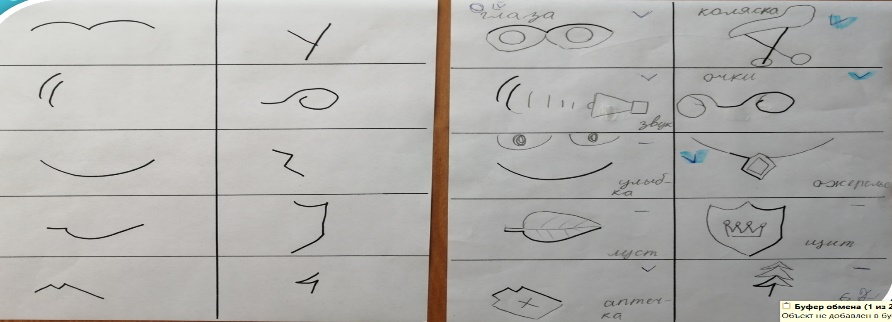 глаза
коляска
очки
звук
улыб-
ка
ожерелье
лист
щит
аптеч-
ка
Буфер обмена (1 из 2
Объект не добавлен в бу